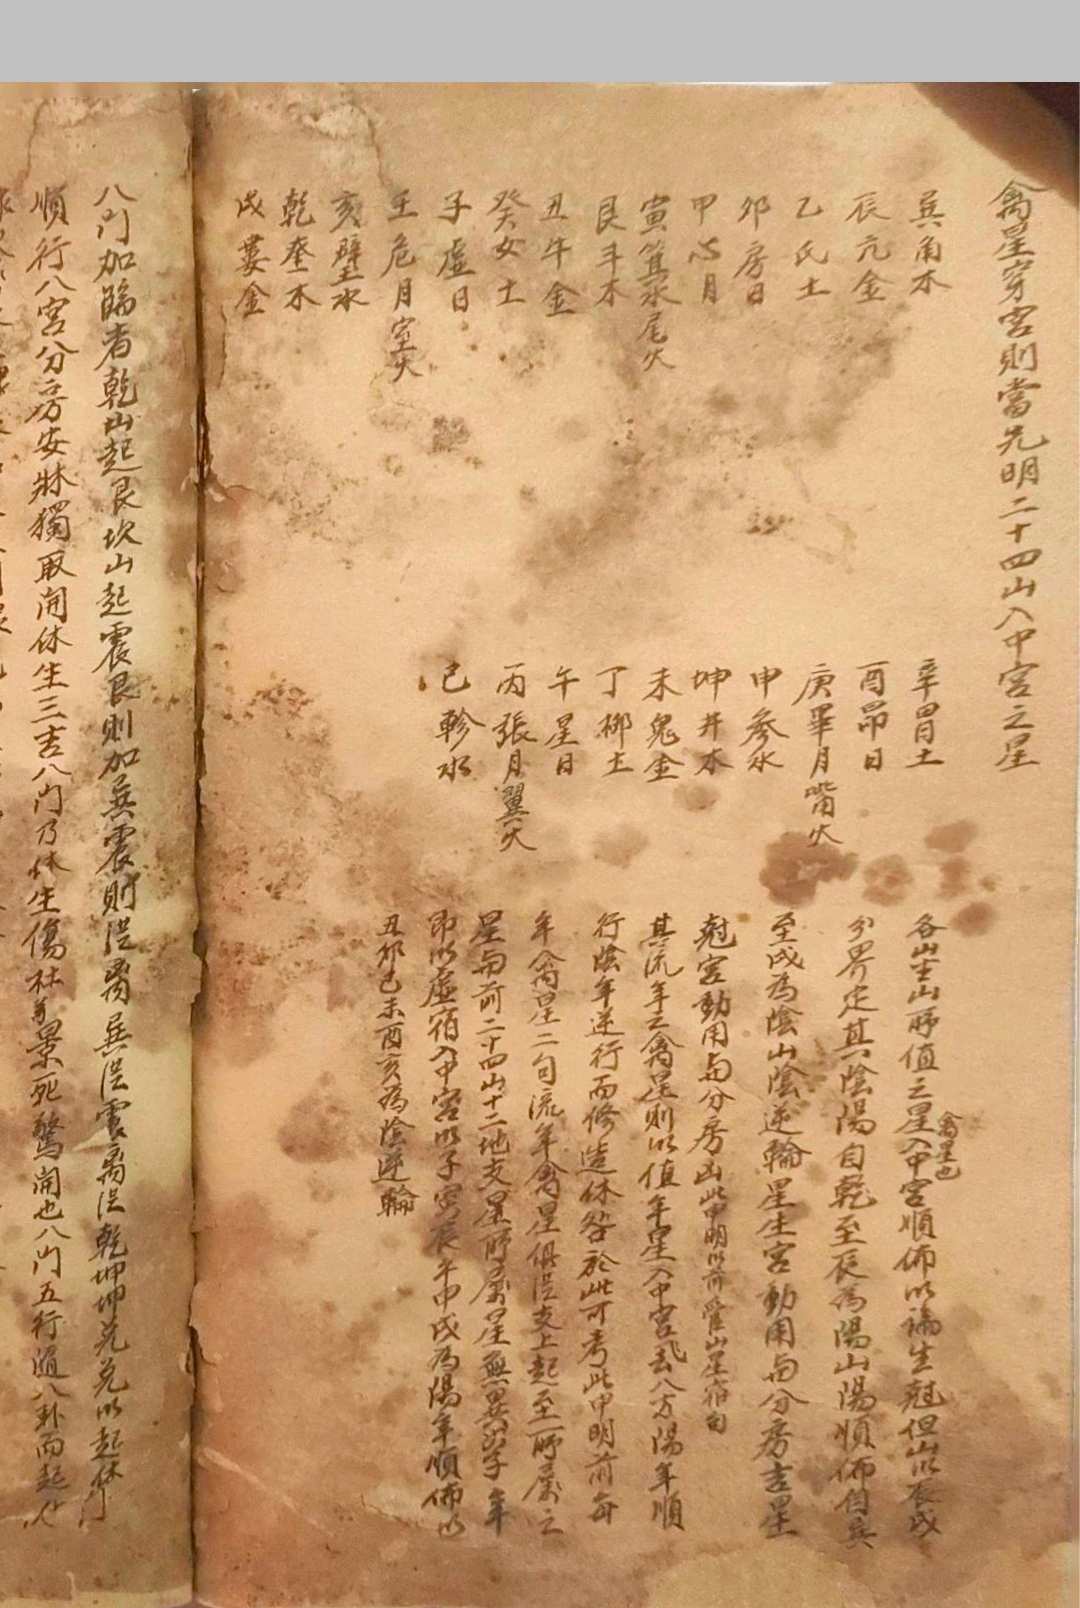 禽星穿宮則當先明二十四山入中宮之星
巽角木
辰亢金
乙氐土
卯房日
甲心月
寅箕水尾火
艮斗木
丑牛金
癸女土
子虛日
壬危月室火
亥壁水
乾奎木
戌婁金
辛胃土
酉昴日
庚畢月嘴火
申參水
坤井木
未鬼金
丁柳土
午星日
丙張月翼火
巳軫水
各山坐山所值之星入中宮順佈以論生尅但山以辰戌
禽星也
分界定其陰陽自乾至辰為陽山陽順佈自巽
至戌為陰山陰逆輪星生宮動用与分房吉星
尅宮動用与分房凶此申明以前山星宿句
其流年之禽星則以值年星入中宮飛八方陽年順
行陰年逆行而修造休咎於此可考此申明前每
年禽星二句流年禽星俱從支上起至所屬之
星与前二十四山十二地支星所屬星無異如子年
即以虛宿入中宮以子寅辰午申戌為陽年順佈以
丑卯巳未酉亥為陰逆輪
八門加臨者乾山起艮坎山起震艮則加巽震則從離巽從震離從乾坤坤兌兌以起休門
順行八宮分房安牀獨取開休生三吉八門乃休生傷杜景死驚開也八門五行隨八卦而起